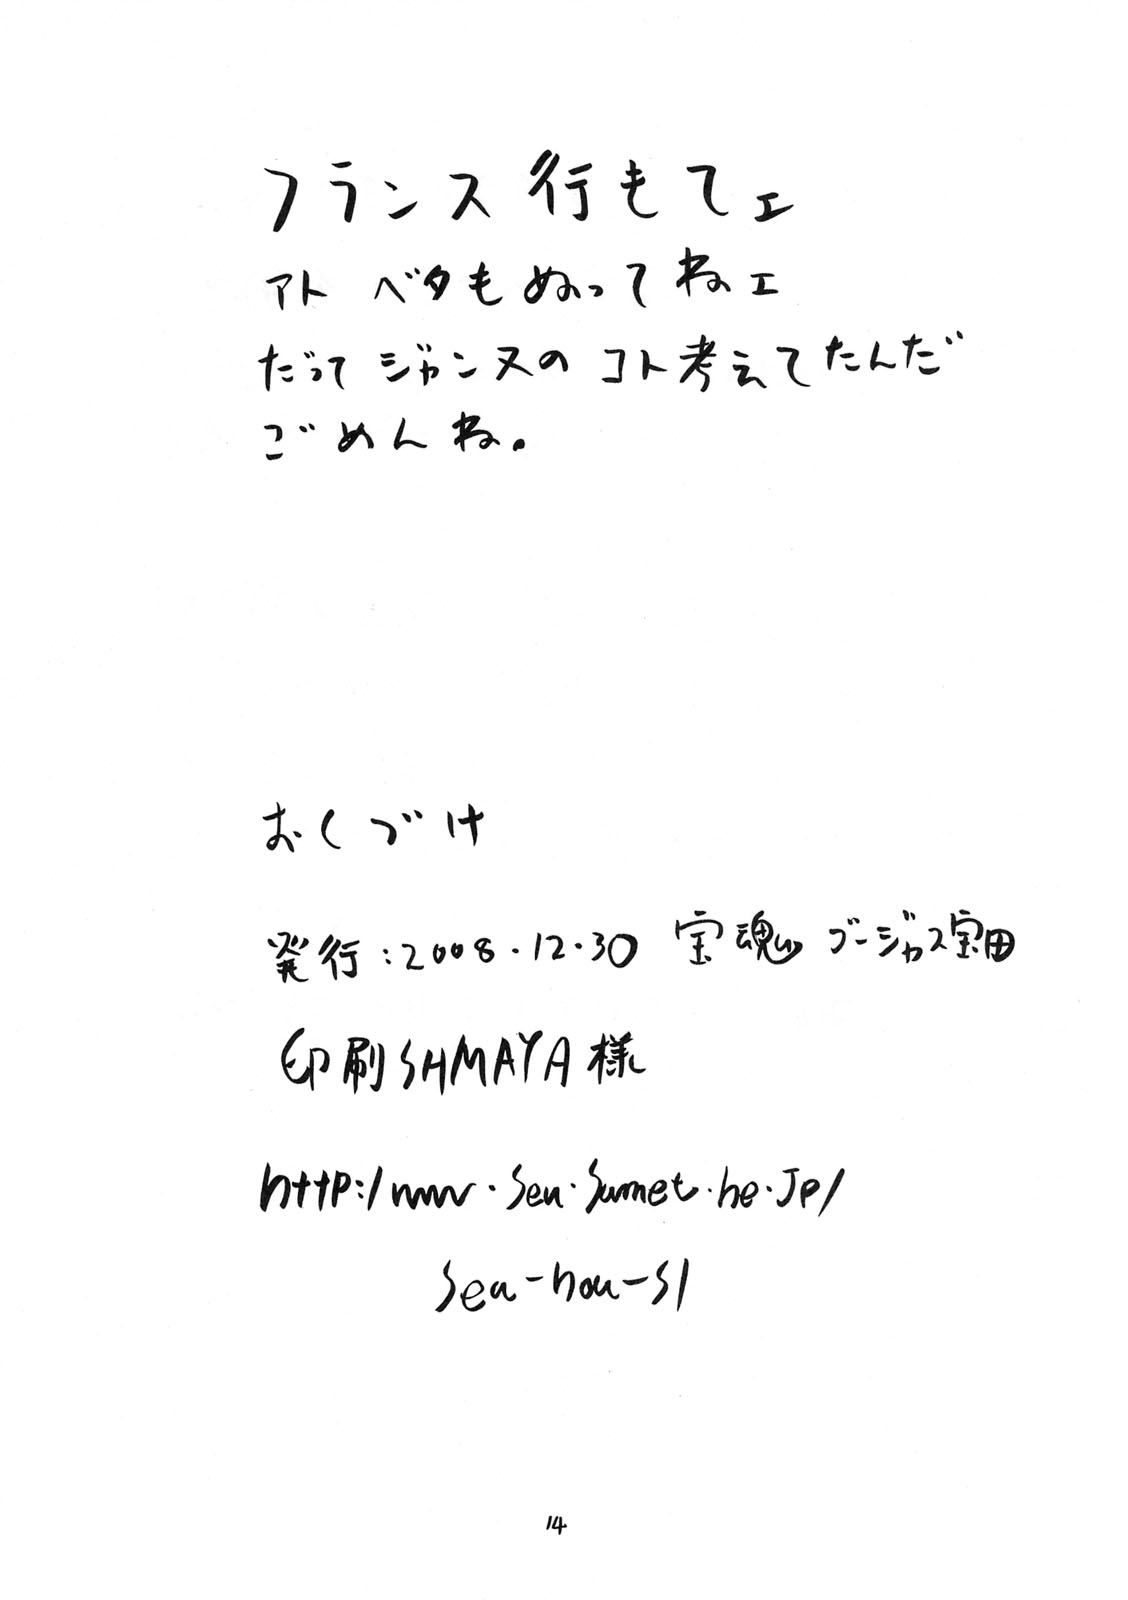 フランス行もてェ
アト ベタもぬってねェ
だって ジャンヌの コト考えてたんだ
ごめんね。
おくづけ
発行:2008.12.30 宝魂 ゴージャス宝田
印刷SHMAYA様
http:/www.sea.sannet.ne.jp/
sea-hou-s/
14